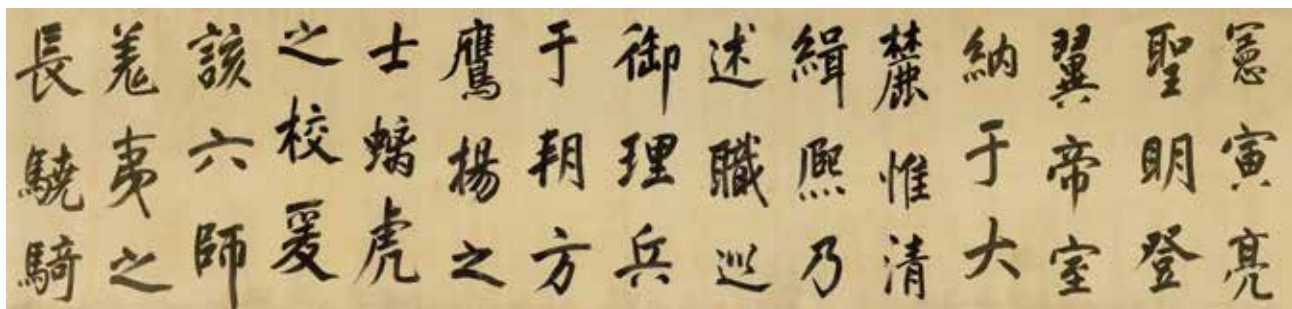 憲寅亮
聖明登
翼帝室
納于大
麓惟清
緝熙乃
述職巡
御理兵
于朔方
鷹揚之
士螭虎
之校爰
該六師
羌夷之
長驍騎